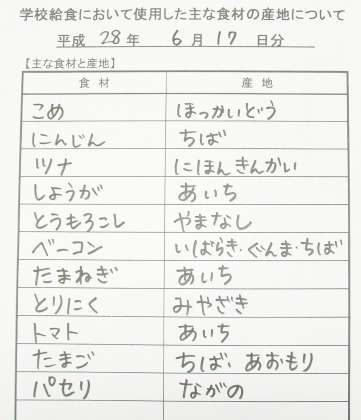 学校給食において使用した主な食材の産地について
平成 28 年 6 月 17 日分
【主な食材と産地】
食材 産地
こめ ほっかいどう
にんじん ちば
ツナ にほんきんかい
しょうが あいち
とうもろこし やまなし
ベーコン いばらき・ぐんま・ちば
たまねぎ あいち
とりにく みやざき
トマト あいち
たまご ちば、あおもり
パセリ ながの